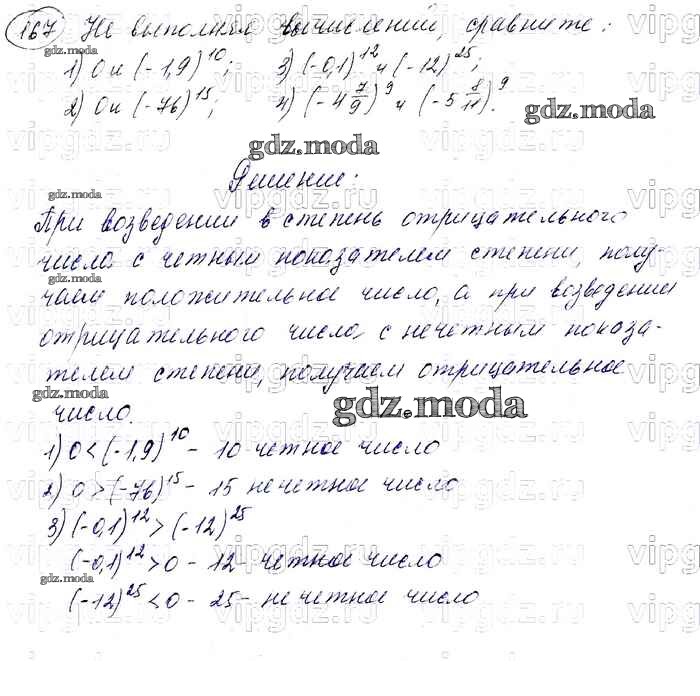 167 Не выполняя вычислений, сравните:
1) 0 и (-1,9)^10; 3) (-0,1)^12 и (-12)^25;
2) 0 и (-76)^15; 4) (-4 7/9)^9 и (-5 8/11)^9.
Решение:
При возведении в степень отрицательного
числа с четным показателем степени, полу-
чаем положительное число, а при возведении
отрицательного числа с нечетным показа-
телем степени, получаем отрицательное
число.
1) 0 < (-1,9)^10 - 10 четное число
2) 0 > (-76)^15 - 15 нечетное число
3) (-0,1)^12 > (-12)^25
(-0,1)^12 > 0 - 12 - четное число
(-12)^25 < 0 - 25 - нечетное число
gdz.moda
gdz.moda
gdz.moda
gdz.moda
gdz.moda
gdz.moda
gdz.moda
gdz.moda
gdz.moda
vipgdz.ru